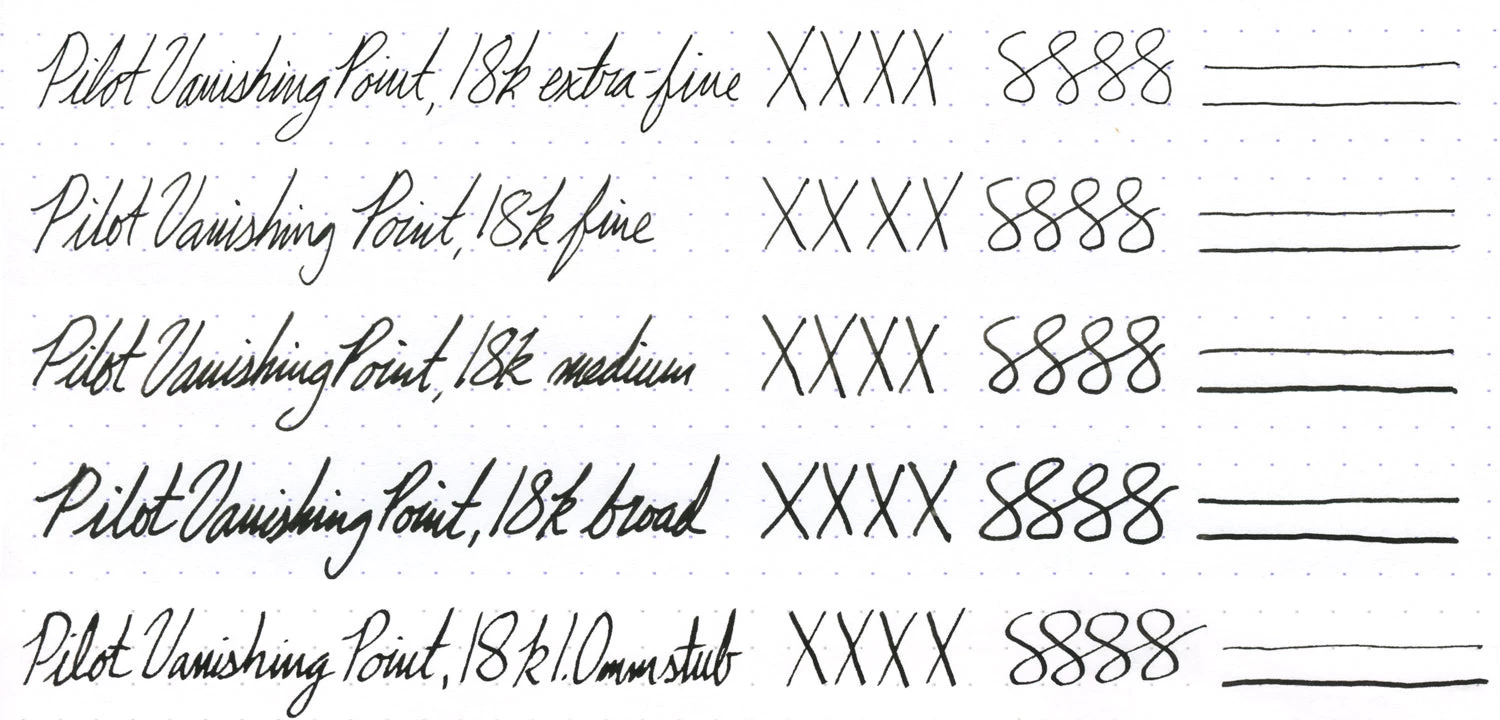 Pilot Vanishing Point, 18k extra-fine XXXX 8888
Pilot Vanishing Point, 18k fine XXXX 8888
Pilot Vanishing Point, 18k medium XXXX 8888
Pilot Vanishing Point, 18k broad XXXX 8888
Pilot Vanishing Point, 18k 1.0mm stub XXXX 8888